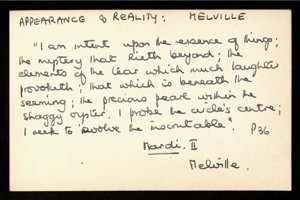 APPEARANCE & REALITY: MELVILLE
"I am intent upon the essence of things;
the mystery that lieth beyond; the
elements of the tear which much laughter
provoketh; that which is beneath the
seeming; the precious pearl within the
shaggy oyster. I probe the circle's centre;
I seek to evolve the inscrutable". P36
Mardi. II
Melville.